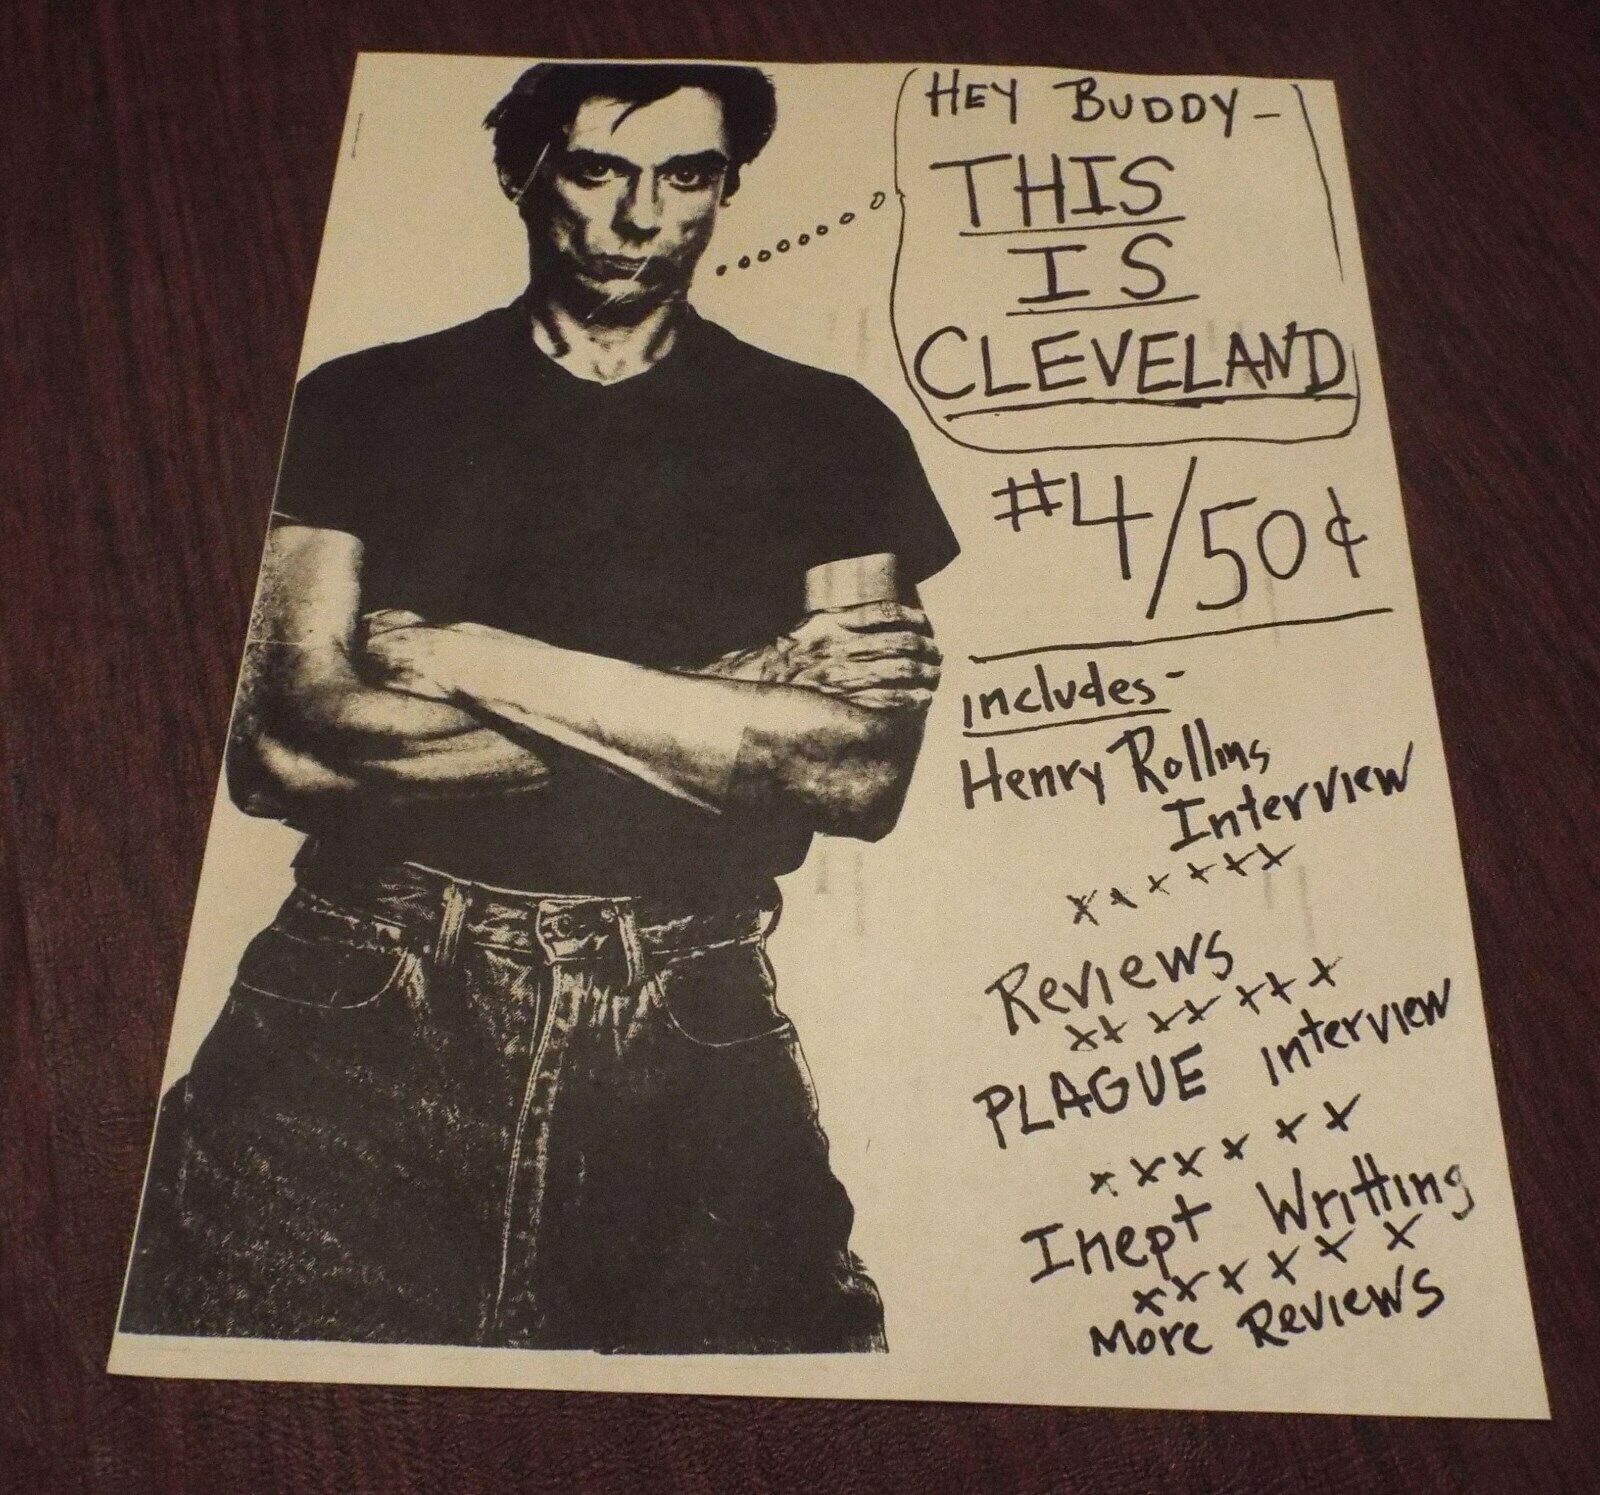 HEY BUDDY-
THIS
IS
CLEVELAND
#4/50¢
includes-
Henry Rollins
Interview
xxxxxx
Reviews
xxxxxxx
PLAGUE interview
xxxxxx
Inept Writting
xxxxxx
More Reviews